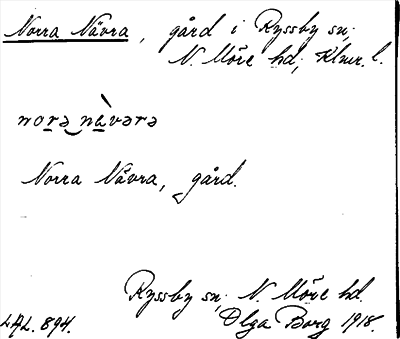 Norra Nävra, gård i Ryssby sn;
N. Möre hd; Klmr. l.
norə nèvərə
Norra Nävra, gård.
Ryssby sn; N. Möre hd.
LAL. 894. Olga Borg 1918.